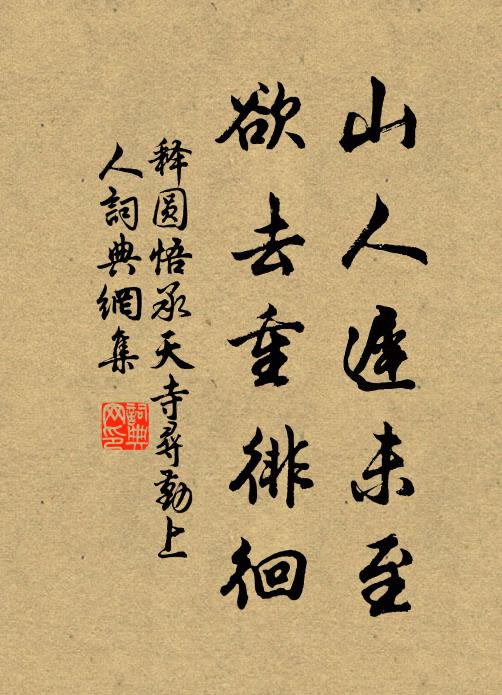 山人遅未至
欲去重徘徊
释圆悟承天寺尋勤上
人詞典網集
詞典
网印